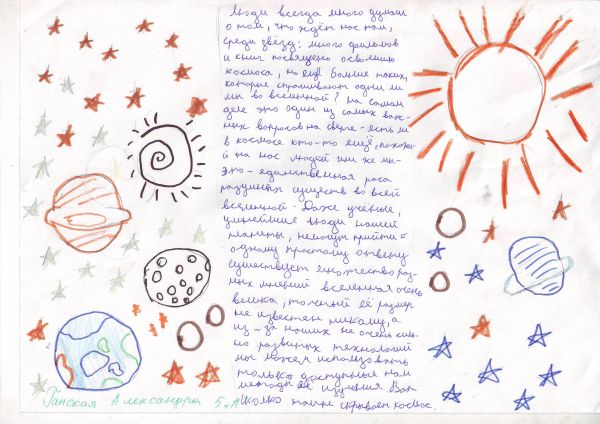 Люди всегда много думали
о том, что ждёт нас там,
среди звёзд: много фильмов
и книг посвящено освоению
космоса, но ещё больше таких,
которые спрашивают одни ли
мы во вселенной? На самом
деле это один из самых важ-
ных вопросов на свете - есть ли
в космосе кто-то ещё, похожи-
й на нас людей или же мы -
это - единственная раса
разумных существ во всей
вселенной. Даже учёные,
умнейшие люди нашей
планеты, не могут прийти к
одному простому ответу
существует множество раз-
ных мнений вселенная очень
велика, точный её размер
не известен никому, а
из-за наших не очень силь-
но развитых технологий
мы можем использовать
только доступные нам
методы её изучения Вот
сколько тайн скрывает космос.
Ганская Александра 5"А"